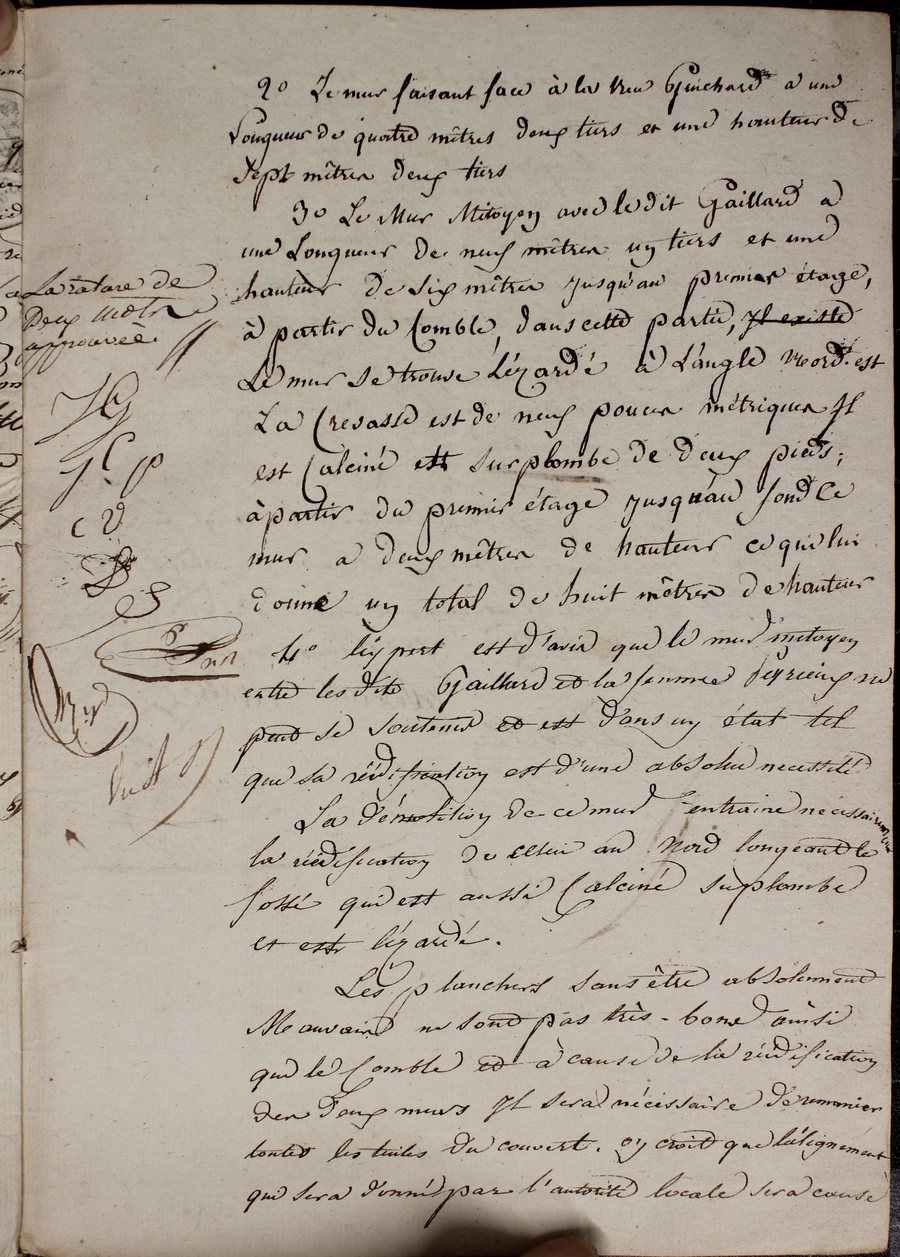 2° Le mur faisant face à la rue Guichard a une
Longueur de quatre mètres deux tiers et une hauteur de
Sept mètres deux tiers
3° Le Mur Mitoyen avec le dit Gaillard a
une Longueur de neuf mètres un tiers et une
hauteur de six mètres jusqu'au premier étage,
à partir du Comble, dans cette partie, Il existe
Le mur se trouve Lézardé à L'angle nord-est
La Crevasse est de neuf pouces métriques Il
est Calciné et surplombe de deux pieds;
à partir du premier étage jusqu'au fond Ce
mur a deux mètres de hauteur ce qui lui
donne un total de huit mètres de hauteur
4° l'expert est d'avis que le mur mitoyen
entre les dits Gaillard et la femme Peyrieux ne
peut se soutenir et est dans un état tel
que sa réédification est d'une absolue necessité
La démolition de ce mur entraine nécessairement
la réédification de celui au Nord longeant le
fossé qui est aussi Calciné suplombe
et est lézardé.
Les planchers sans être absolument
Mauvais ne sont pas très-bons ainsi
que le Comble et à cause de la réédification
des deux murs Il sera nécessaire de remanier
toutes les tuiles du couvert. on croit que l'alignement
qui sera donné par l'autorité locale sera cause
La rature de
Deux mots
approuvée
JG
JC P
C V
vu et